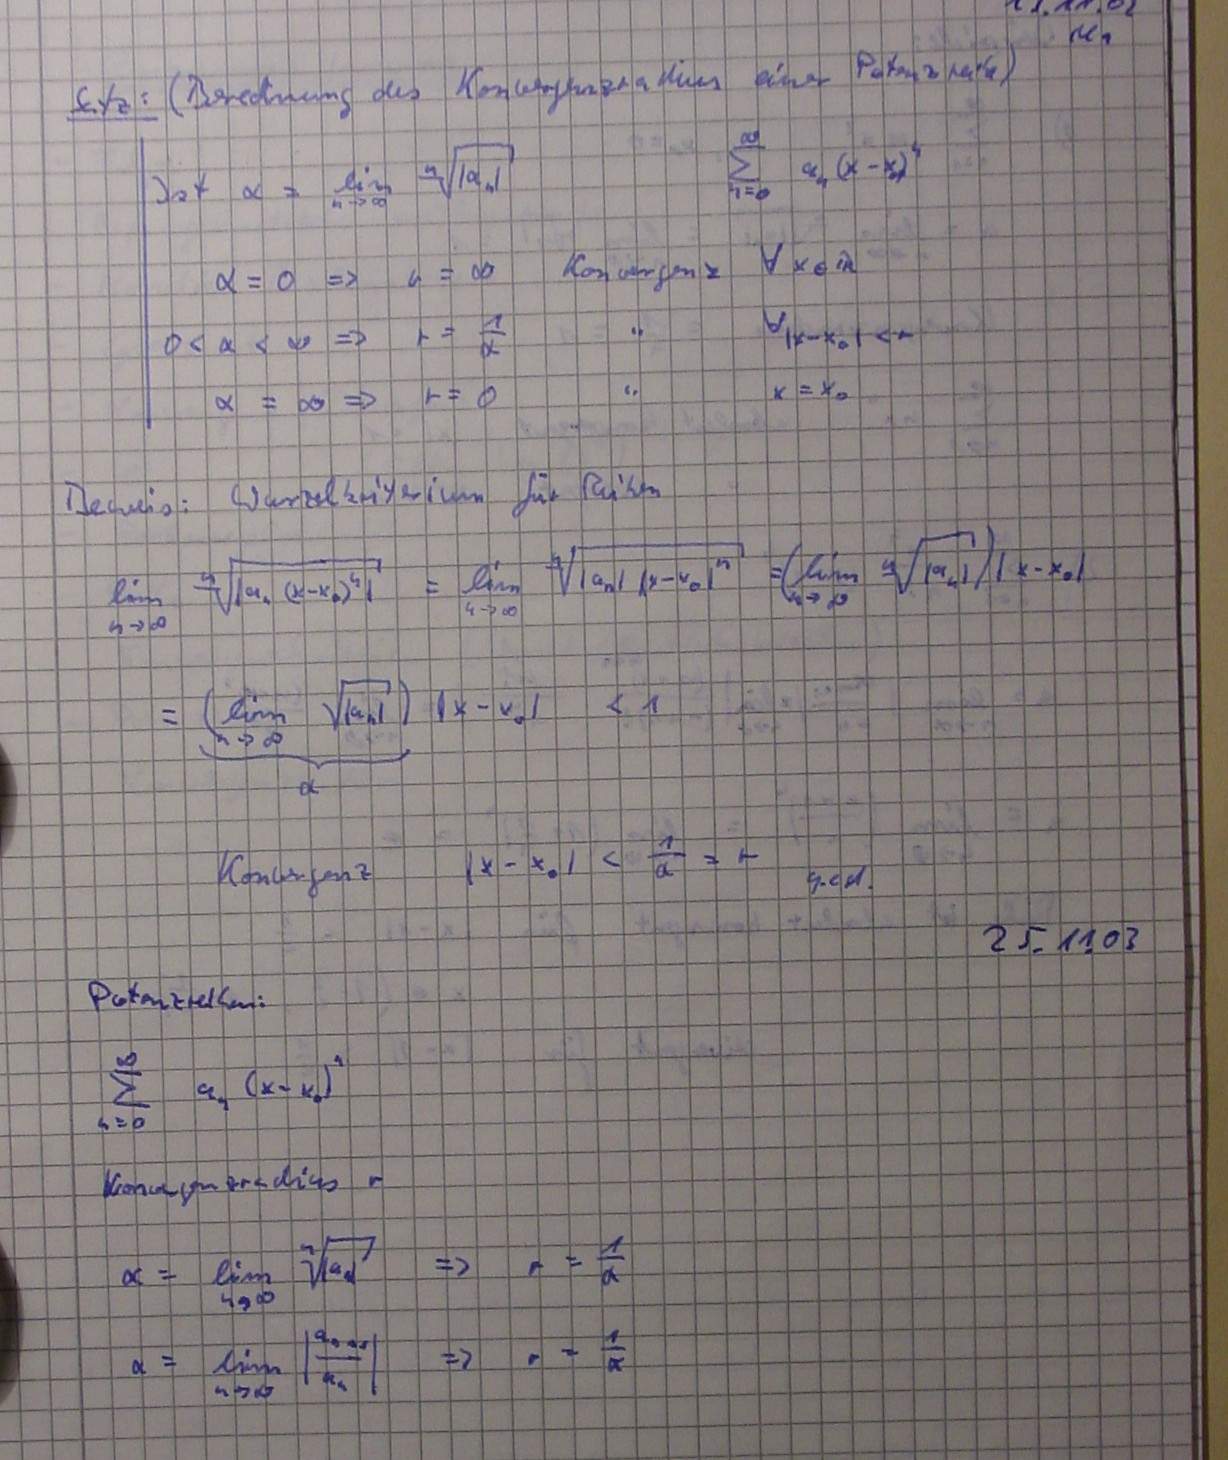 Satz: (Berechnung des Konvergenzradius einer Potenzreihe)
Ist α = lim n→∞ ⁿ√|aₙ| ∞ ∑ n=0 aₙ (x-x₀)ⁿ
α = 0 => r = ∞ Konvergenz ∀ x∈ℝ
0 < α < ∞ => r = 1/α " ∀ |x-x₀| < r
α = ∞ => r = 0 " x = x₀
Beweis: Wurzelkriterium für Reihen
lim n→∞ ⁿ√|aₙ (x-x₀)ⁿ| = lim n→∞ ⁿ√|aₙ| |x-x₀|ⁿ = (lim n→∞ ⁿ√|aₙ|) |x-x₀|
= (lim n→∞ √|aₙ|) |x-x₀| < 1
α
Konvergenz |x-x₀| < 1/α = r q.e.d.
25.11.03
Potenzreihen:
∞ ∑ n=0 aₙ (x-x₀)ⁿ
Konvergenzradius r
α = lim n→∞ ⁿ√|aₙ| => r = 1/α
α = lim n→∞ |aₙ₊₁/aₙ| => r = 1/α